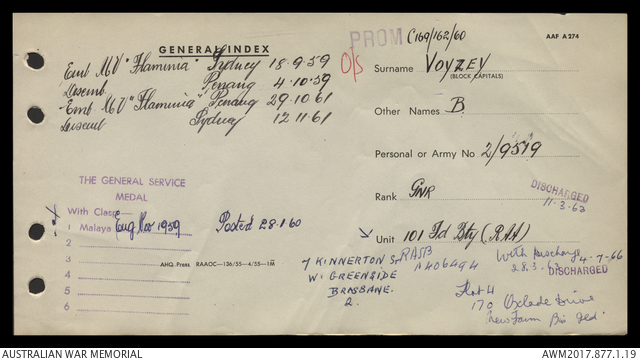 GENERAL INDEX
PROM C169/162/60
AAF A 274
Emb MV "Flaminia" Sydney 18.9.59
O/S
Disemb Penang 4.10.59
Emb MV "Flaminia" Penang 29.10.61
Disemb Sydney 12.11.61
Surname VOYZEY
(BLOCK CAPITALS)
Other Names B
Personal or Army No 2/9519
Rank GNR
DISCHARGED
11-3-63
Unit 101 Fd Bty (RAA)
THE GENERAL SERVICE
MEDAL
With Clasp
1 Malaya Eng Nov 1959
Posted 28.1.60
2
3
4
5
6
AHQ Press RAAOC—136/55—4/55—1M
7 KINNERTON S
W. GREENSIDE
BRISBANE
2.
RASB
A406494
With discharge
28.3.63
4-7-66
DISCHARGED
Flat 4
170 Oxlade Drive
New Farm